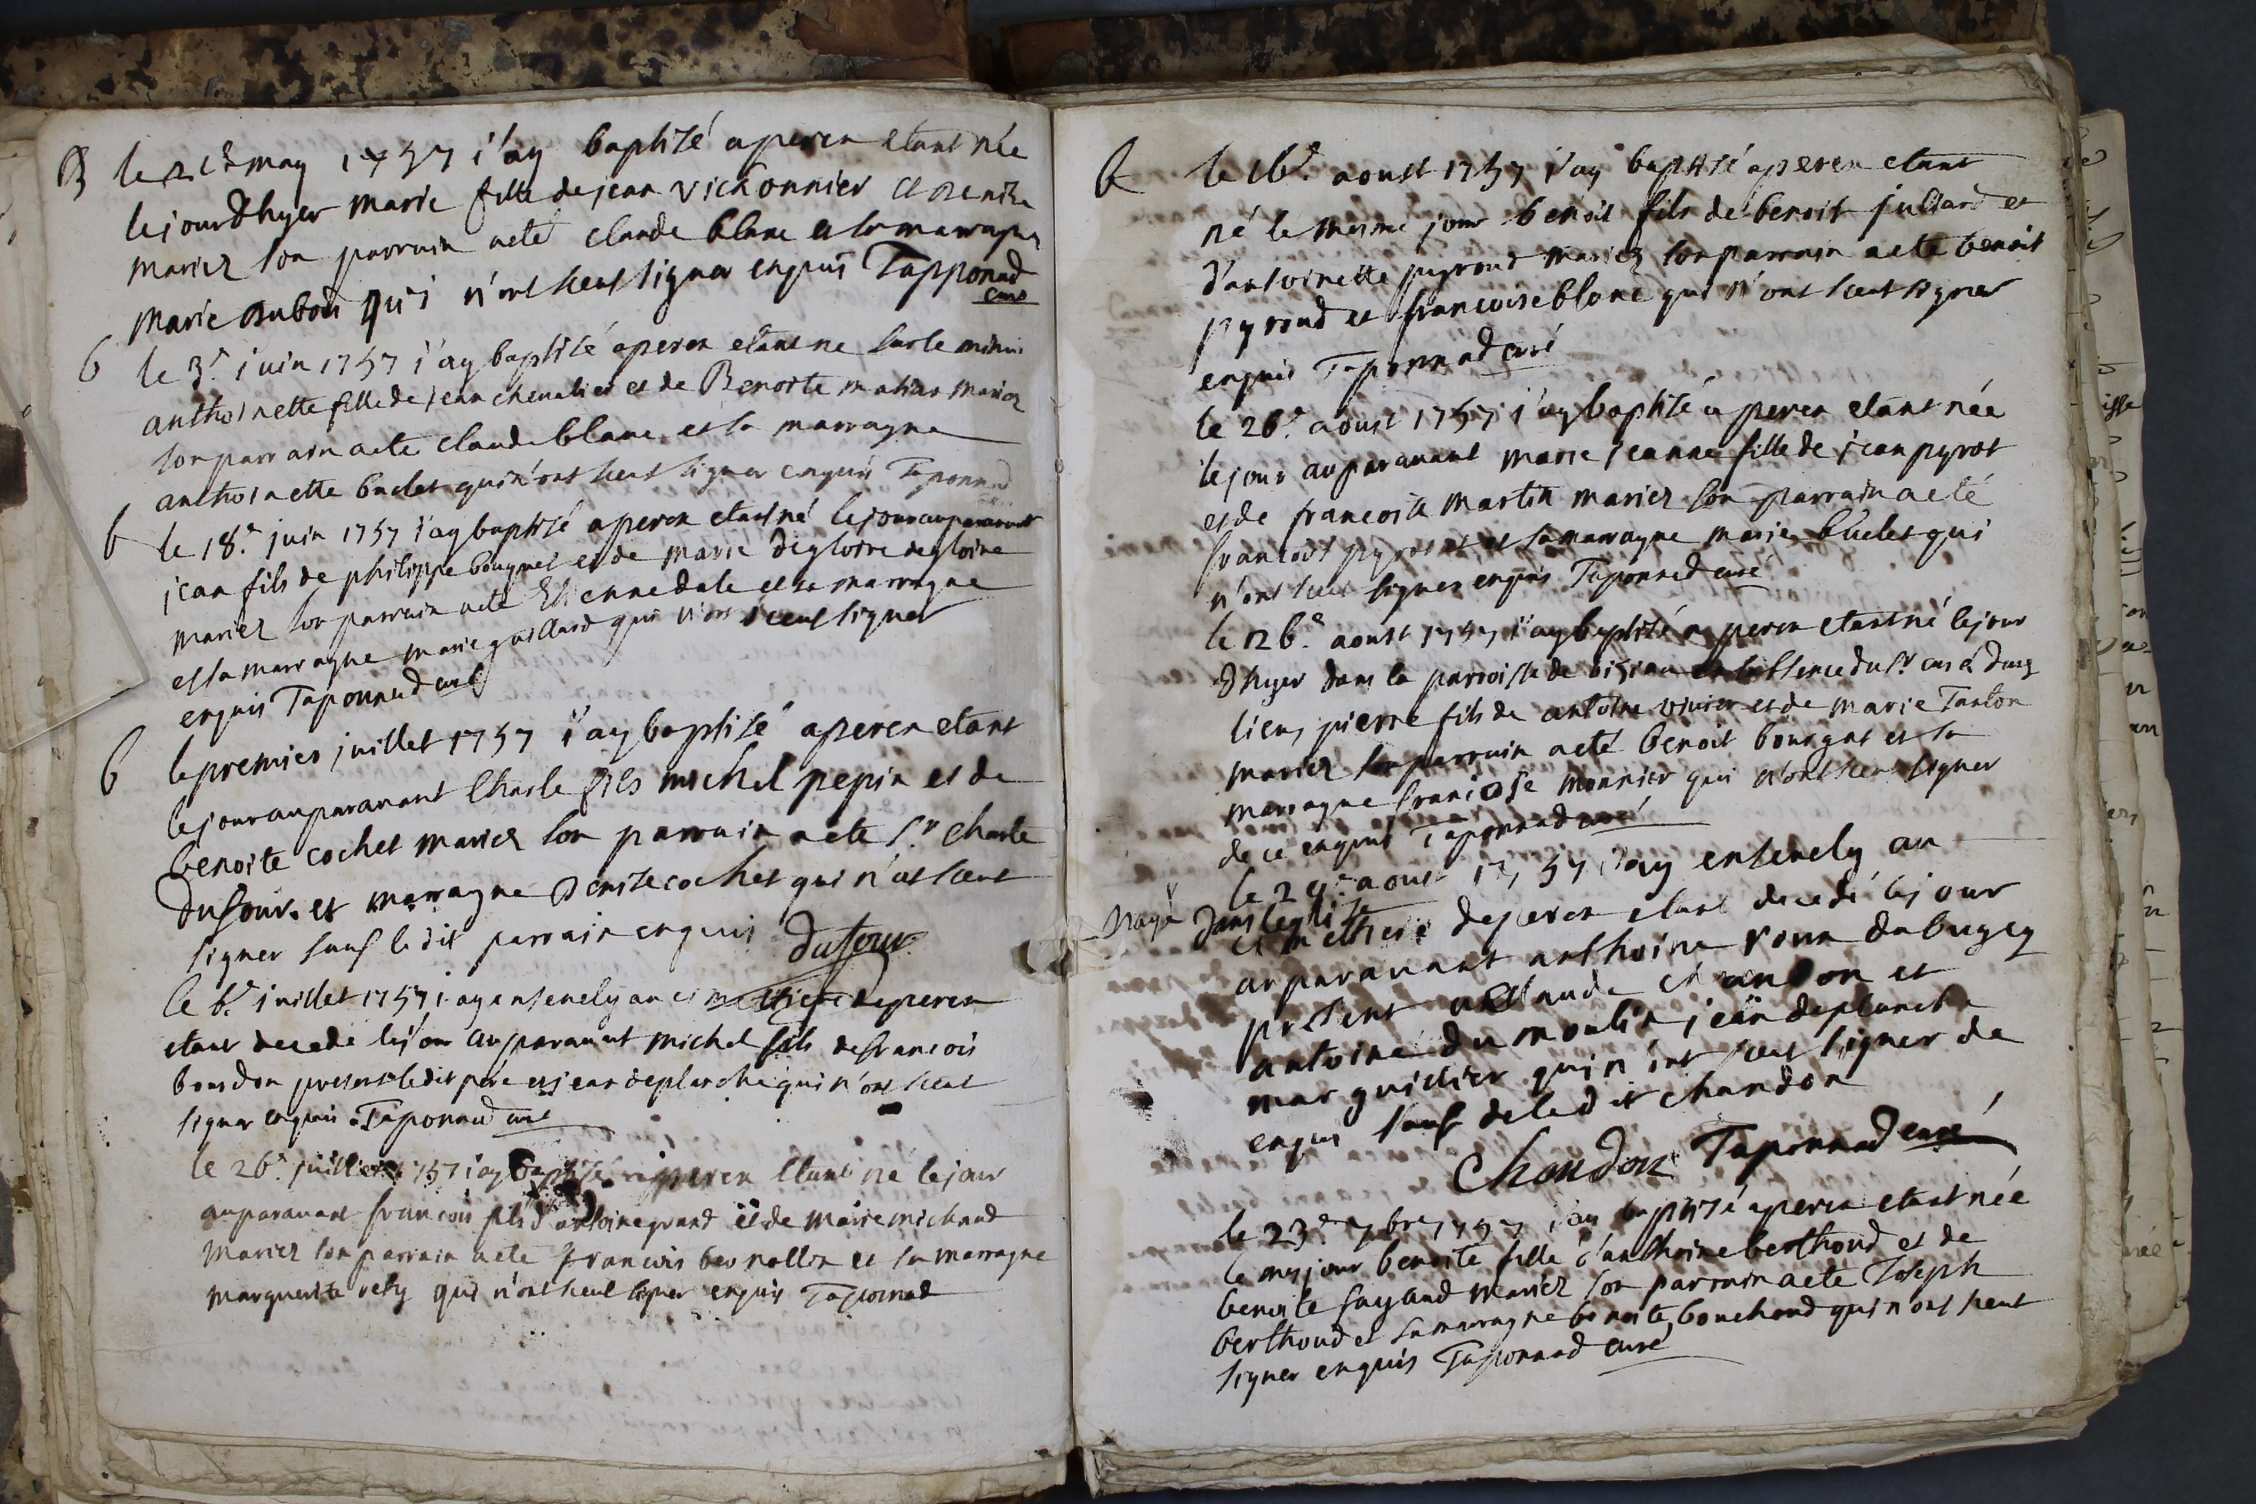 B le 21e may 1757 j'ay baptisé a peren etant née
le jour d'hyer marie fille de jean vichonnier et Benite
mariez son parrain a eté claude blanc et sa marragne
marie Dubois qui n'ont sceut signer enquis Tapponad
curé
b le 3e juin 1757 j'ay baptisé a peren etant ne sur le minui
anthoinette fille de jean chevalier et de Benoite matias mariez
son parrain a eté claude blanc et sa marragne
anthoinette buclet qui n'ont sceut signer enquis Taponnad
b le 18e juin 1757 j'ay baptisé a peren etant né le jour auparavant
jean fils de philippe bouquet et de marie degloire degloire
mariez son parrain a eté Etienne dale et sa marragne
et sa marragne marie gaillard qui n'ont sceut signer
enquis Taponnad curé
b le premier juillet 1757 j'ay baptisé a peren etant
le jour auparavant Charle fils michel pepin et de
benoite cochet mariez son parrain a eté Sr charle
dufour et marragne Denise cochet qui n'at sceut
signer sauf le dit parrain enquis dufour
le 6e juillet 1757 j'ay ensenely au cimettiere de peren
etant decedé le jour auparavant michel fils de francois
bourdon present le dit père et jean deplanche qui n'ont sceut
signer enquis Taponnad curé
le 26e juillet 1757 j'ay baptisé a peren etant né le jour
auparavant francois fils d'antoine grand et de marie michaud
mariez son parrain a eté francois bernollin et sa marragne
marguerite rety qui n'ont sceut signer enquis Taponnad
b le 16e aoust 1757 j'ay baptisé a peren etant
né le mesme jour benoit fils de benoit julliard et
d'antoinette pyroud mariez son parrain a eté benoit
pyroud et francoise blanc qui n'ont sceut signer
enquis Taponnad curé
le 26e aoust 1757 j'ay baptisé a peren etant née
le jour auparavant marie jeanne fille de jean pyrot
et de francoise martin mariez son parrain a eté
francois pyrot et sa marragne marie buclet qui
n'ont sceut signer enquis Taponnad curé
le 26e aoust 1757 j'ay baptisé a peren etant né le jour
d'hyer dans la parroisse de bisiau du Sr curé dud
lieu, pierre fils de antoine vivier et de marie Tanton
mariez son parrain a eté benoit bourgat et sa
marragne francoise monnier qui n'ont sceut signer
de ce enquis Taponnad curé
le 29e aoust 1757 j'ay ensenely au
nayé dans leglise
cimettiere de peren etant decedé le jour
auparavant anthoine roux du bugey
present claude chandon et
antoine du moulin jean deplanche
marguillier qui n'ont sceut signer de
enquis sauf de le dit chandon
Chandon Taponnad curé
le 23e 7bre 1757 j'ay baptisé a peren etant née
le mes jour benoite fille d'anthoine berthoud et de
benoite fayard mariez son parrain a eté Joseph
berthoud et sa marragne benoite bouchard qui n'ont sceut
signer enquis Taponnad curé